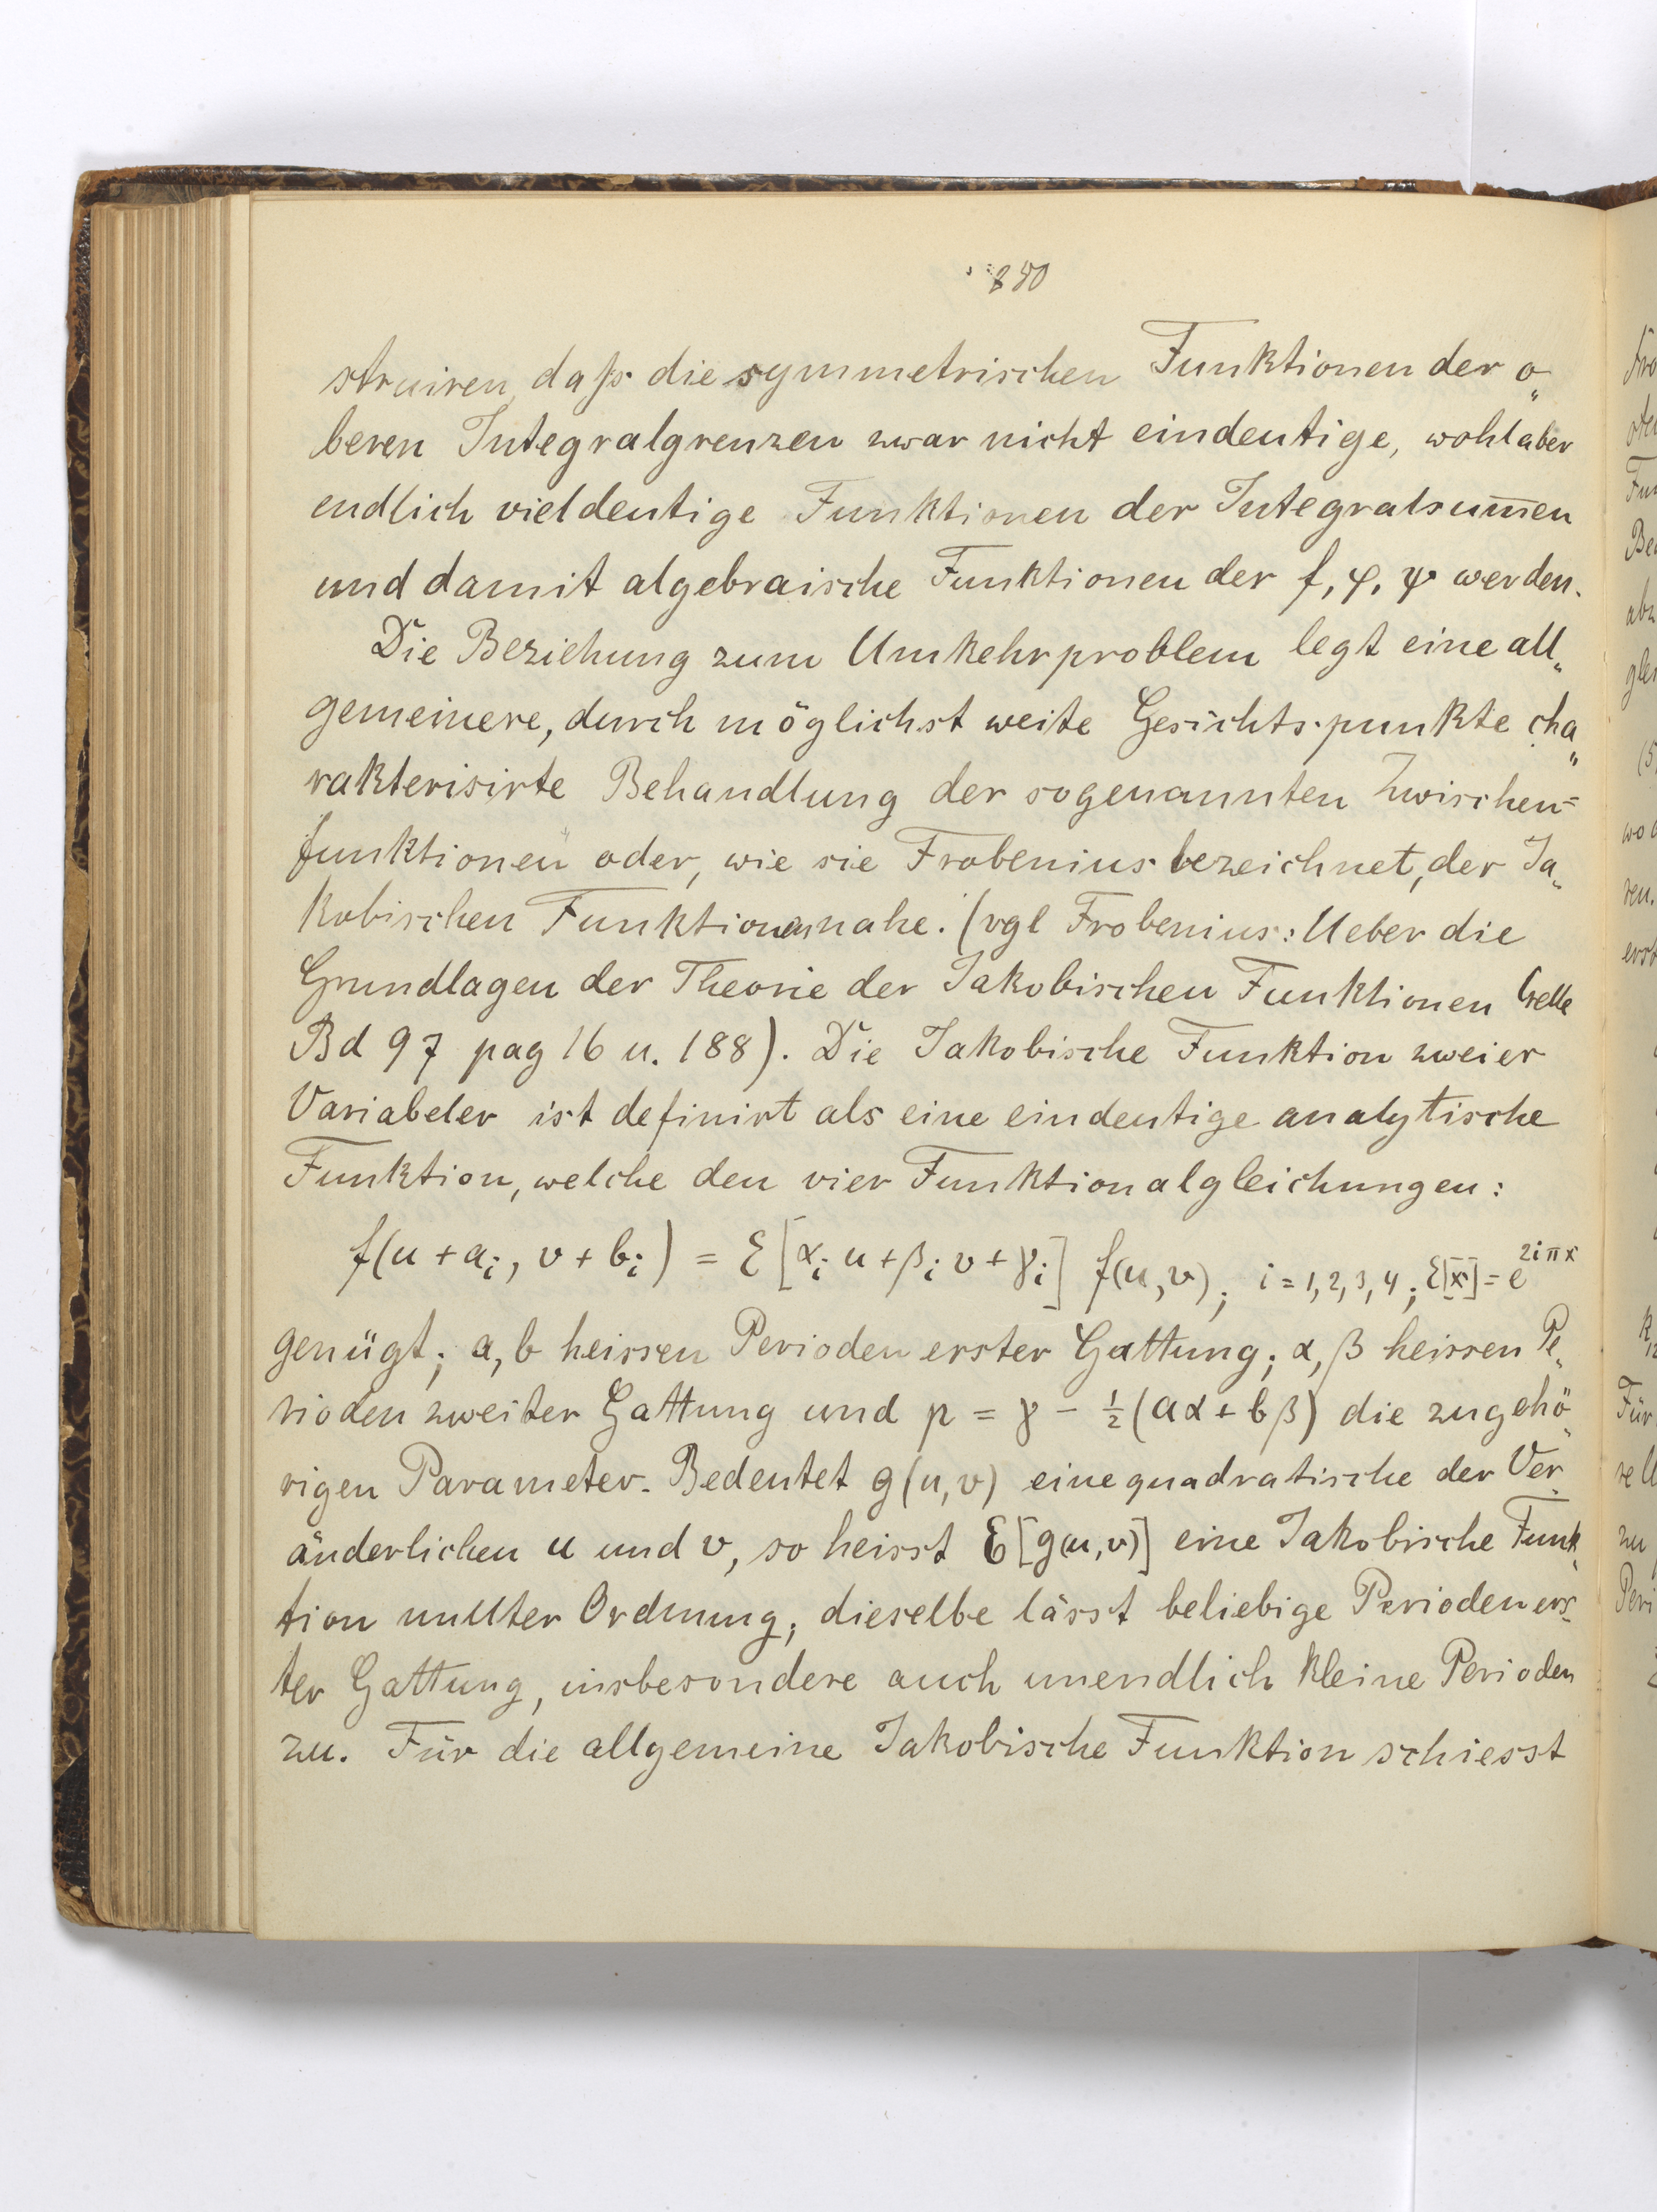 280
struiren, daß die symmetrischen Funktionen der o„
beren Integralgrenzen zwar nicht eindeutige, wohl aber
endlich vieldeutige Funktionen der Integralsum̅en
und damit algebraische Funktionen der f, φ, ψ werden.
Die Beziehung zum Umkehrproblem legt eine all„
gemeinere, durch möglichst weite Gesichtspunkte cha„
rakterisirte Behandlung der sogenannten Zwischen=
funktionen oder, wie sie Frobenius bezeichnet, der Ja„
kobischen Funktionen nahe. (vgl Frobenius: Ueber die
Grundlagen der Theorie der Jakobischen Funktionen Crelle
Bd 97 pag 16 u. 188). Die Jakobische Funktion zweier
Variabeler ist definirt als eine eindeutige analytische
Funktion, welche den vier Funktionalgleichungen:
f(u + aᵢ, v + bᵢ) = ℰ[αᵢ u + βᵢ v + γᵢ] f(u, v); i = 1, 2, 3, 4; ℰ[x] = e^{2iπx}
genügt; a, b heissen Perioden erster Gattung; α, β heissen Pe„
rioden zweiter Gattung und p = γ − ½(aα + bβ) die zugehö„
rigen Parameter. Bedeutet g(u, v) eine quadratische der Ver„
änderlichen u und v, so heisst ℰ[g(u, v)] eine Jakobische Funk„
tion nullter Ordnung; dieselbe lässt beliebige Perioden ers„
ter Gattung, insbesondere auch unendlich kleine Perioden
zu. Für die allgemeine Jakobische Funktion schiesst